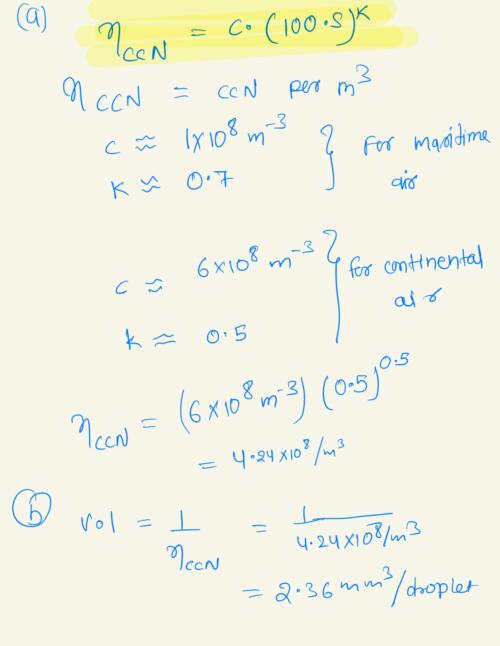 (a) η_CCN = c·(100·S)^k
η_CCN = CCN per m³
c ≈ 1×10⁸ m⁻³ } For maritime
k ≈ 0.7 air
c ≈ 6×10⁸ m⁻³ } for continental
k ≈ 0.5 air
η_CCN = (6×10⁸ m⁻³) (0.5)^0.5
= 4.24×10⁸/m³
(b) vol = 1/η_CCN = 1/(4.24×10⁸/m³)
= 2.36 mm³/droplet